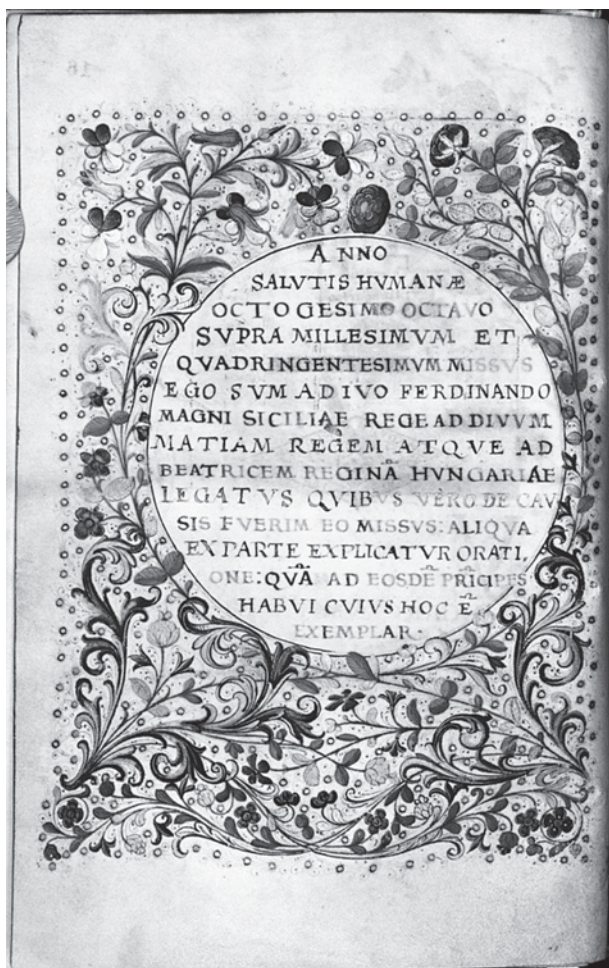 ANNO
SALVTIS HVMANÆ
OCTOGESIMO OCTAVO
SVPRA MILLESIMVM ET
QVADRINGENTESIMVM MISSVS
EGO SVM AD IVO FERDINANDO
MAGNI SICILIAE REGE AD DIVVM
MATIAM REGEM ATQVE AD
BEATRICEM REGINÃ HVNGARIAE
LEGATVS QVIBVS VERO DE CAV
SIS FVERIM EO MISSVS: ALIQVA
EX PARTE EXPLICATVR ORATI,
ONE: QVÃ AD EOSDẼ PRĨCIPES
HABVI CVIVS HOC Ẽ
EXEMPLAR·